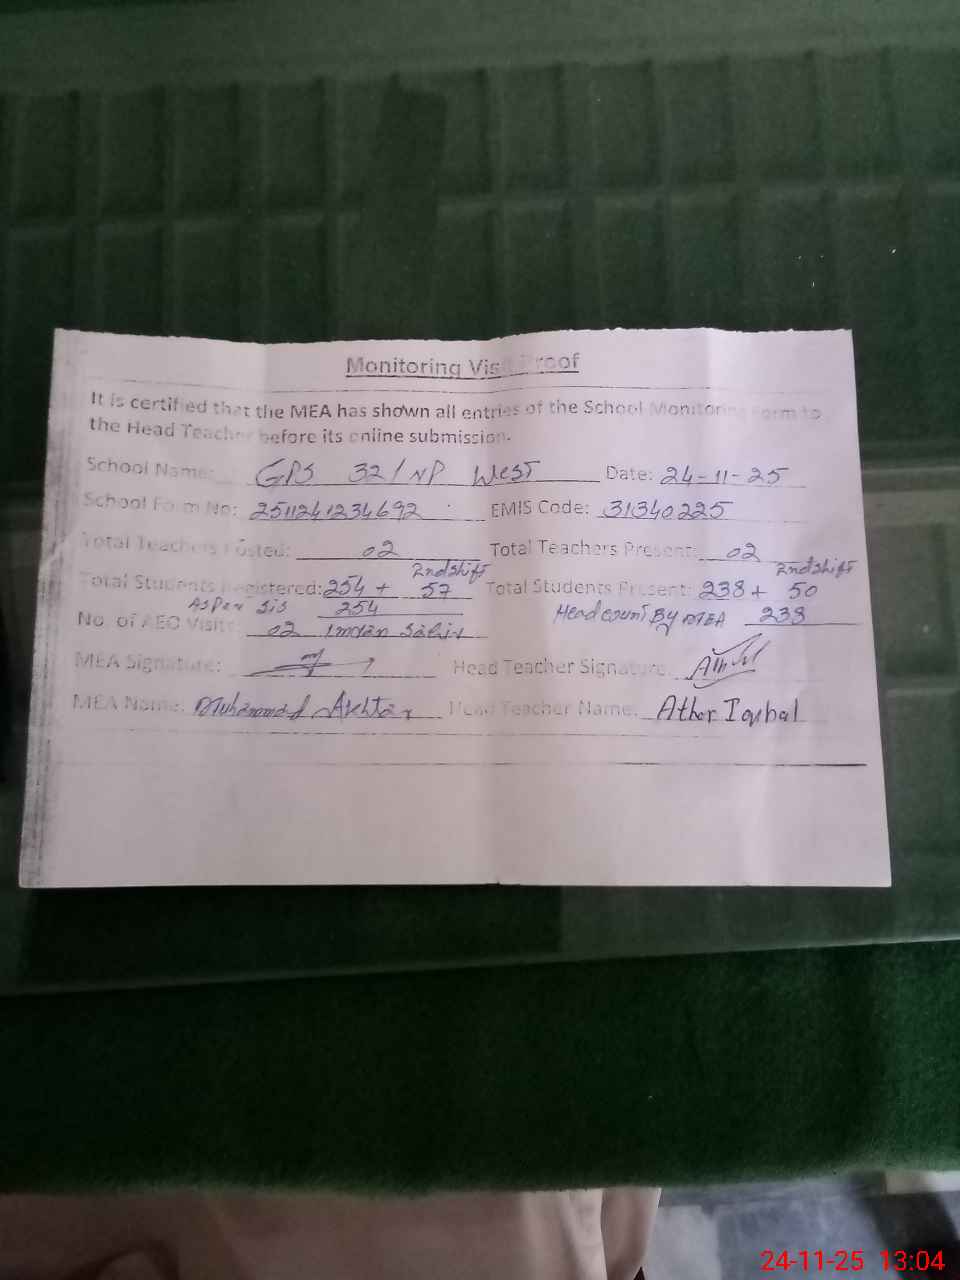 Monitoring Visit Proof
It is certified that the MEA has shown all entries of the School Monitoring Form to
the Head Teacher before its online submission.
School Name: GPS 32/NP West Date: 24-11-25
School Form No: 2511241234692 EMIS Code: 31340225
Total Teachers Posted: 02 Total Teachers Present: 02
2nd shift 2nd shift
Total Students Registered: 254 + 57 Total Students Present: 238 + 50
As Per SIS 254 Head count By MEA 238
No. of AEO Visits: 02 Imran Sabir
MEA Signature: Head Teacher Signature:
MEA Name: Muhammad Akhtar Head Teacher Name: Ather Iqbal
24-11-25 13:04